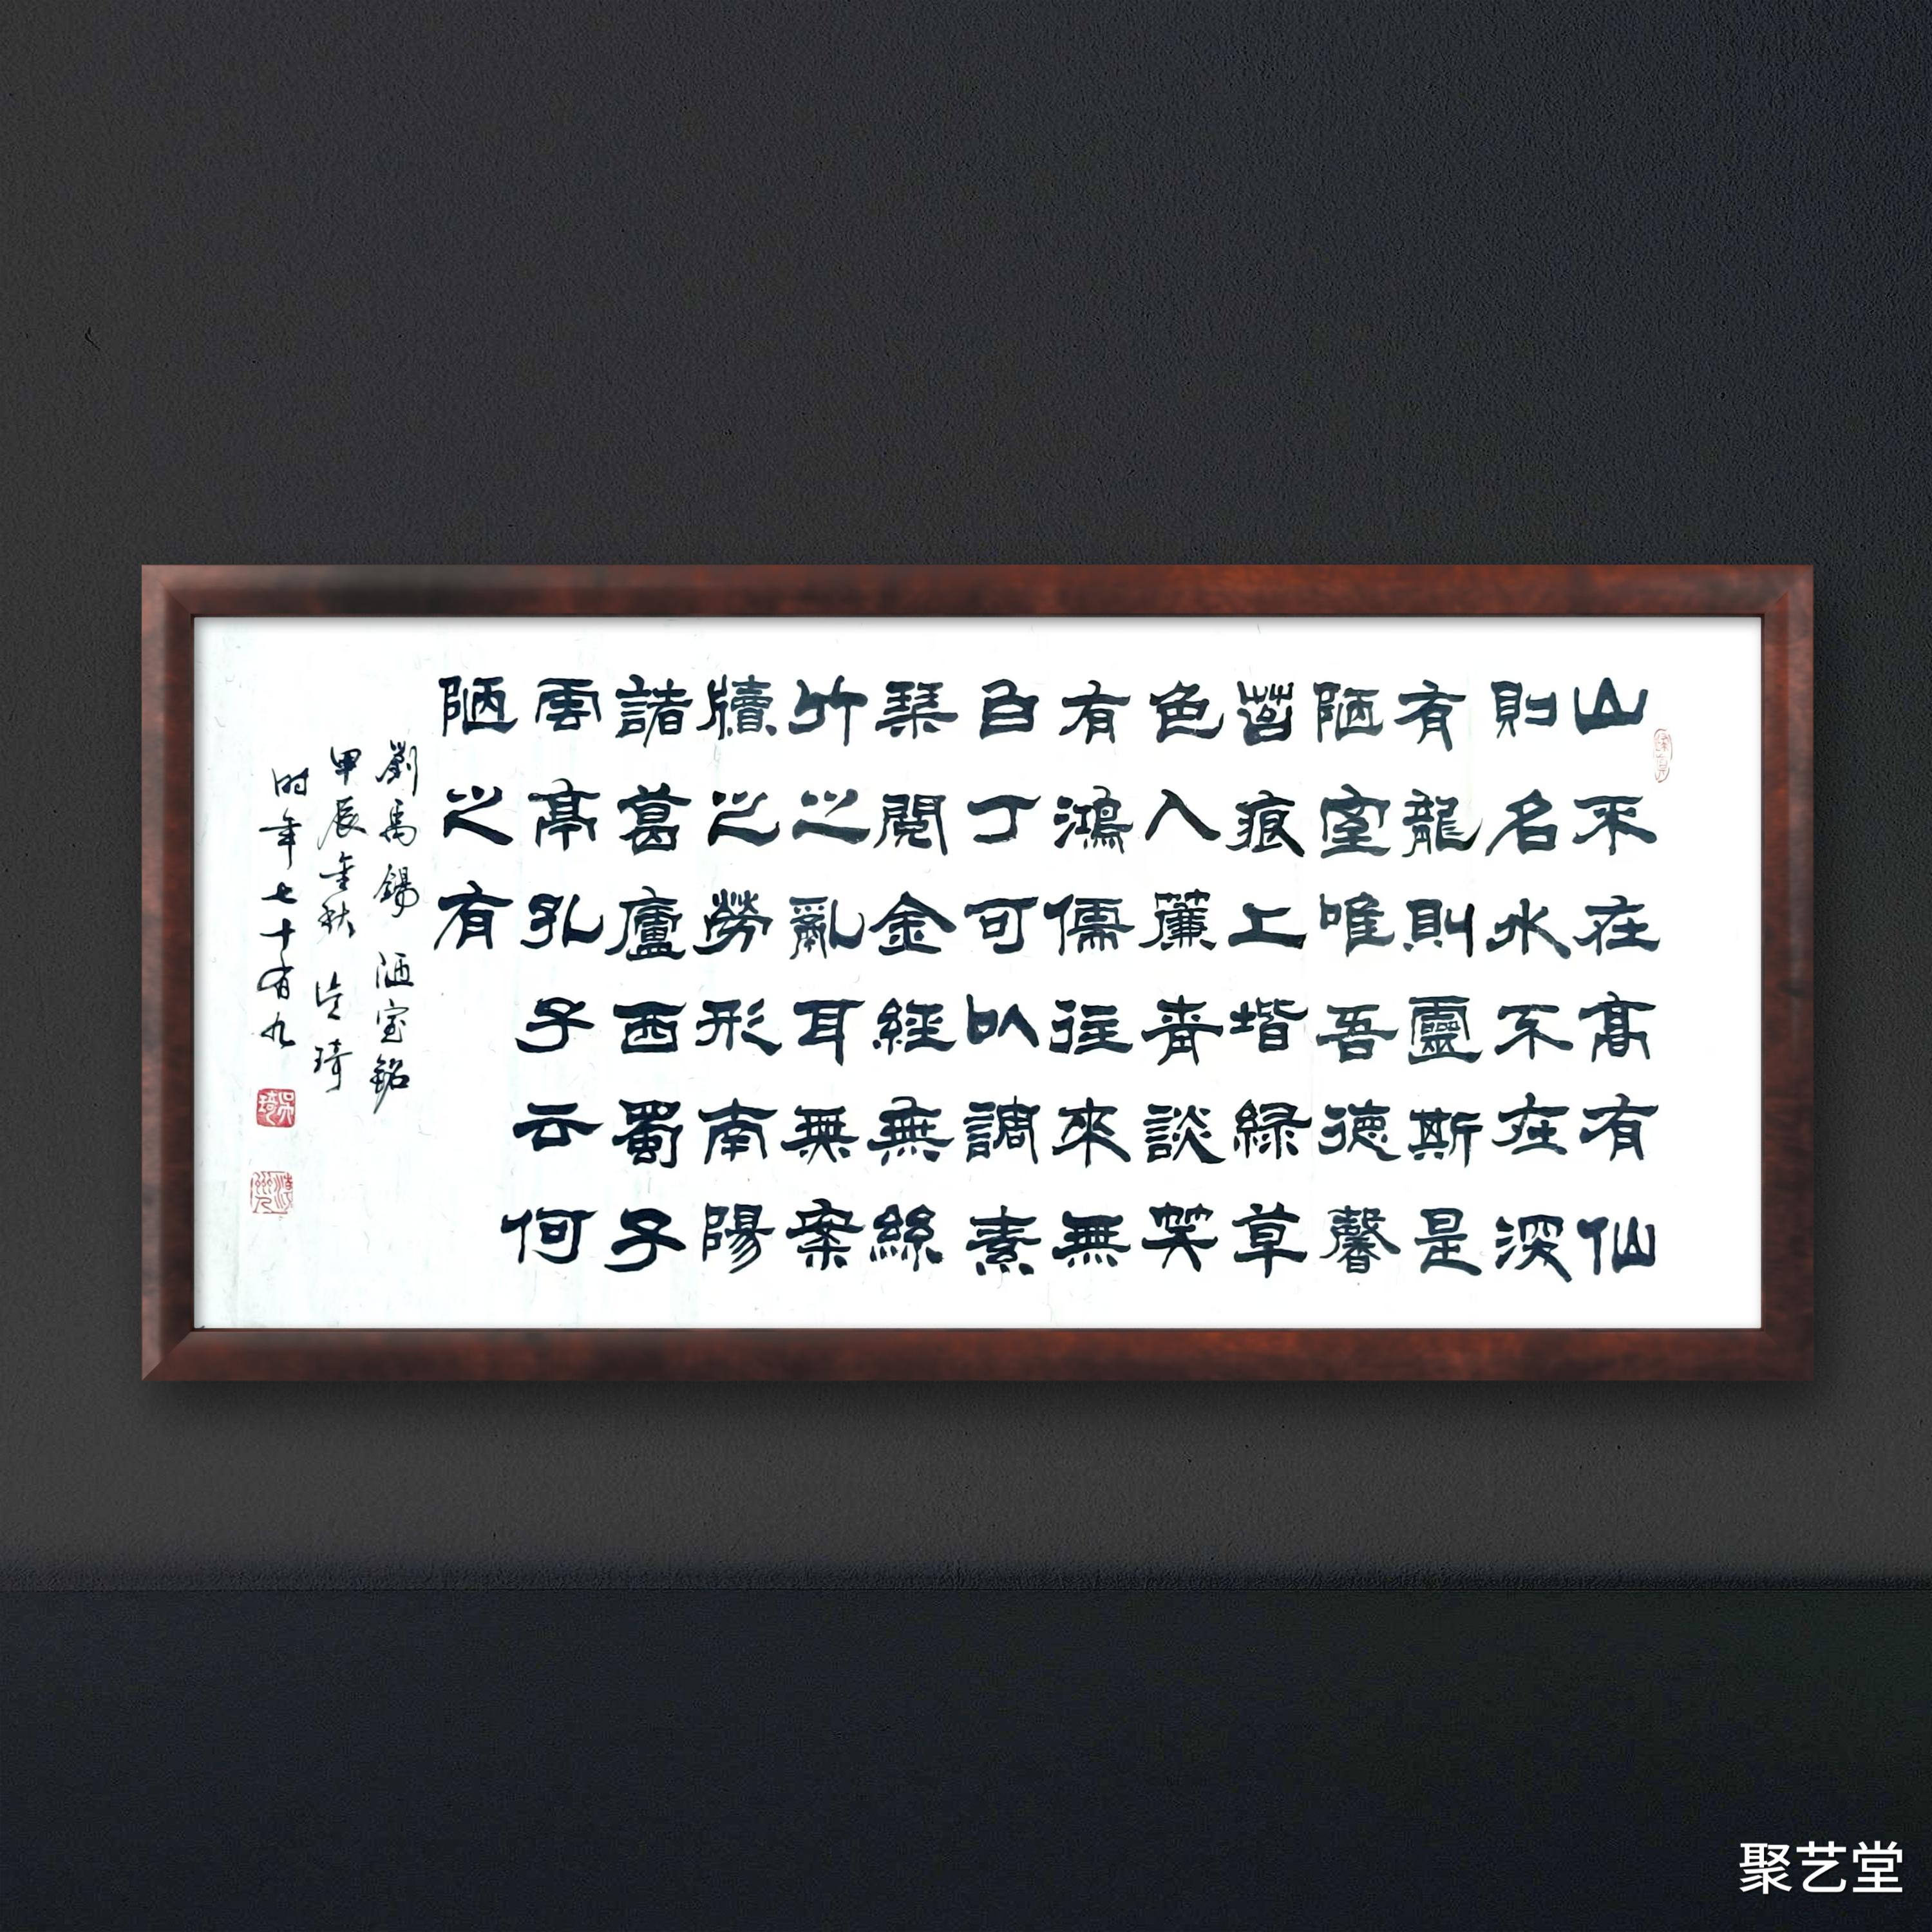 山不在高有仙
則名水不在深
有龍則靈斯是
陋室唯吾德馨
苔痕上堦綠草
色入簾青談笑
有鴻儒往來無
白丁可以調素
琴閱金經無絲
竹之亂耳無案
牘之勞形南陽
諸葛廬西蜀子
雲亭孔子云何
陋之有
劉禹錫 陋室銘
甲辰金秋 吴琦
时年七十有九
吳琦
聚艺堂